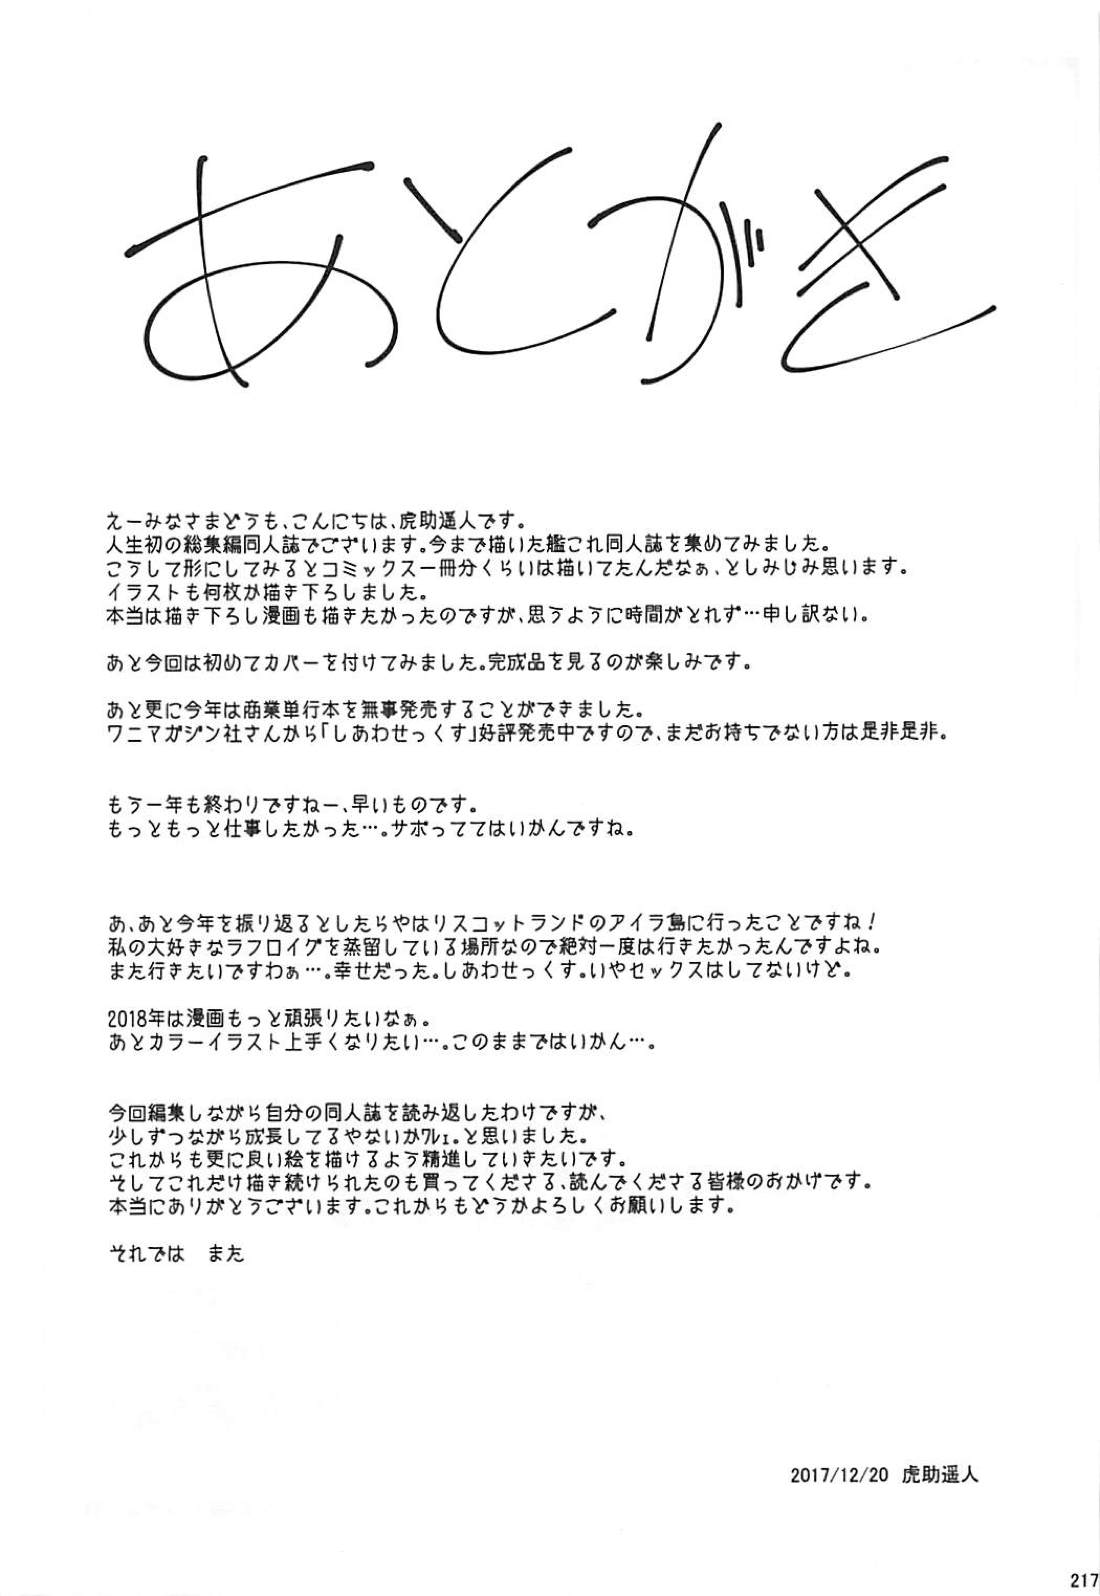 あとがき
えーみなさまどうも、こんにちは、虎助遥人です。
人生初の総集編同人誌でございます。今まで描いた艦これ同人誌を集めてみました。
こうして形にしてみるとコミックス一冊分くらいは描いてたんだなぁ、としみじみ思います。
イラストも何枚か描き下ろしました。
本当は描き下ろし漫画も描きたかったのですが、思うように時間がとれず…申し訳ない。
あと今回は初めてカバーを付けてみました。完成品を見るのが楽しみです。
あと更に今年は商業単行本を無事発売することができました。
ワニマガジン社さんから「しあわせっくす」好評発売中ですので、まだお持ちでない方は是非是非。
もう一年も終わりですねー、早いものです。
もっともっと仕事したかった…。サボっててはいかんですね。
あ、あと今年を振り返るとしたらやはりスコットランドのアイラ島に行ったことですね！
私の大好きなラフロイグを蒸留している場所なので絶対一度は行きたかったんですよね。
また行きたいですわぁ…。幸せだった。しあわせっくす。いやセックスはしてないけど。
2018年は漫画もっと頑張りたいなぁ。
あとカラーイラスト上手くなりたい…。このままではいかん…。
今回編集しながら自分の同人誌を読み返したわけですが、
少しずつながら成長してるやないかﾜﾚｪ。と思いました。
これからも更に良い絵を描けるよう精進していきたいです。
そしてこれだけ描き続けられたのも買ってくださる、読んでくださる皆様のおかげです。
本当にありがとうございます。これからもどうかよろしくお願いします。
それでは　また
2017/12/20 虎助遥人
217